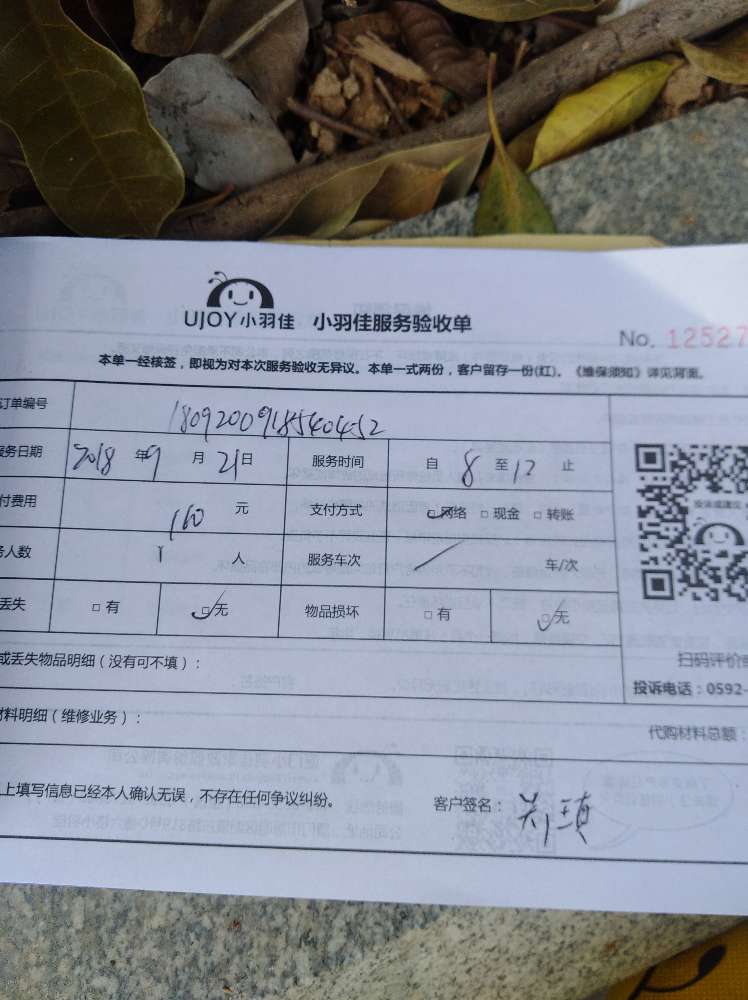 UJOY小羽佳 小羽佳服务验收单
No. 12527
本单一经核签，即视为对本次服务验收无异议。本单一式两份，客户留存一份(红)。《维保须知》详见背面。
订单编号 1809200918540452
服务日期 2018 年 9 月 21 日 服务时间 自 8 至 12 止
付费用 160 元 支付方式 □网络 □现金 □转账
务人数 1 人 服务车次 / 车/次
丢失 □有 □无 物品损坏 □有 □无
扫码评价
或丢失物品明细（没有可不填）：
投诉电话：0592-
材料明细（维修业务）：
代购材料总额：
上填写信息已经本人确认无误，不存在任何争议纠纷。 客户签名：